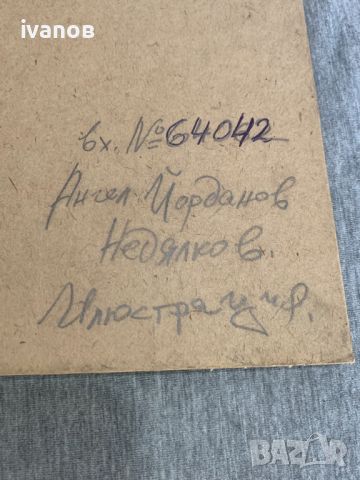 ivanов
вх. №64042
Ангел Йорданов
Недялков.
Илюстрация.
BAZAR